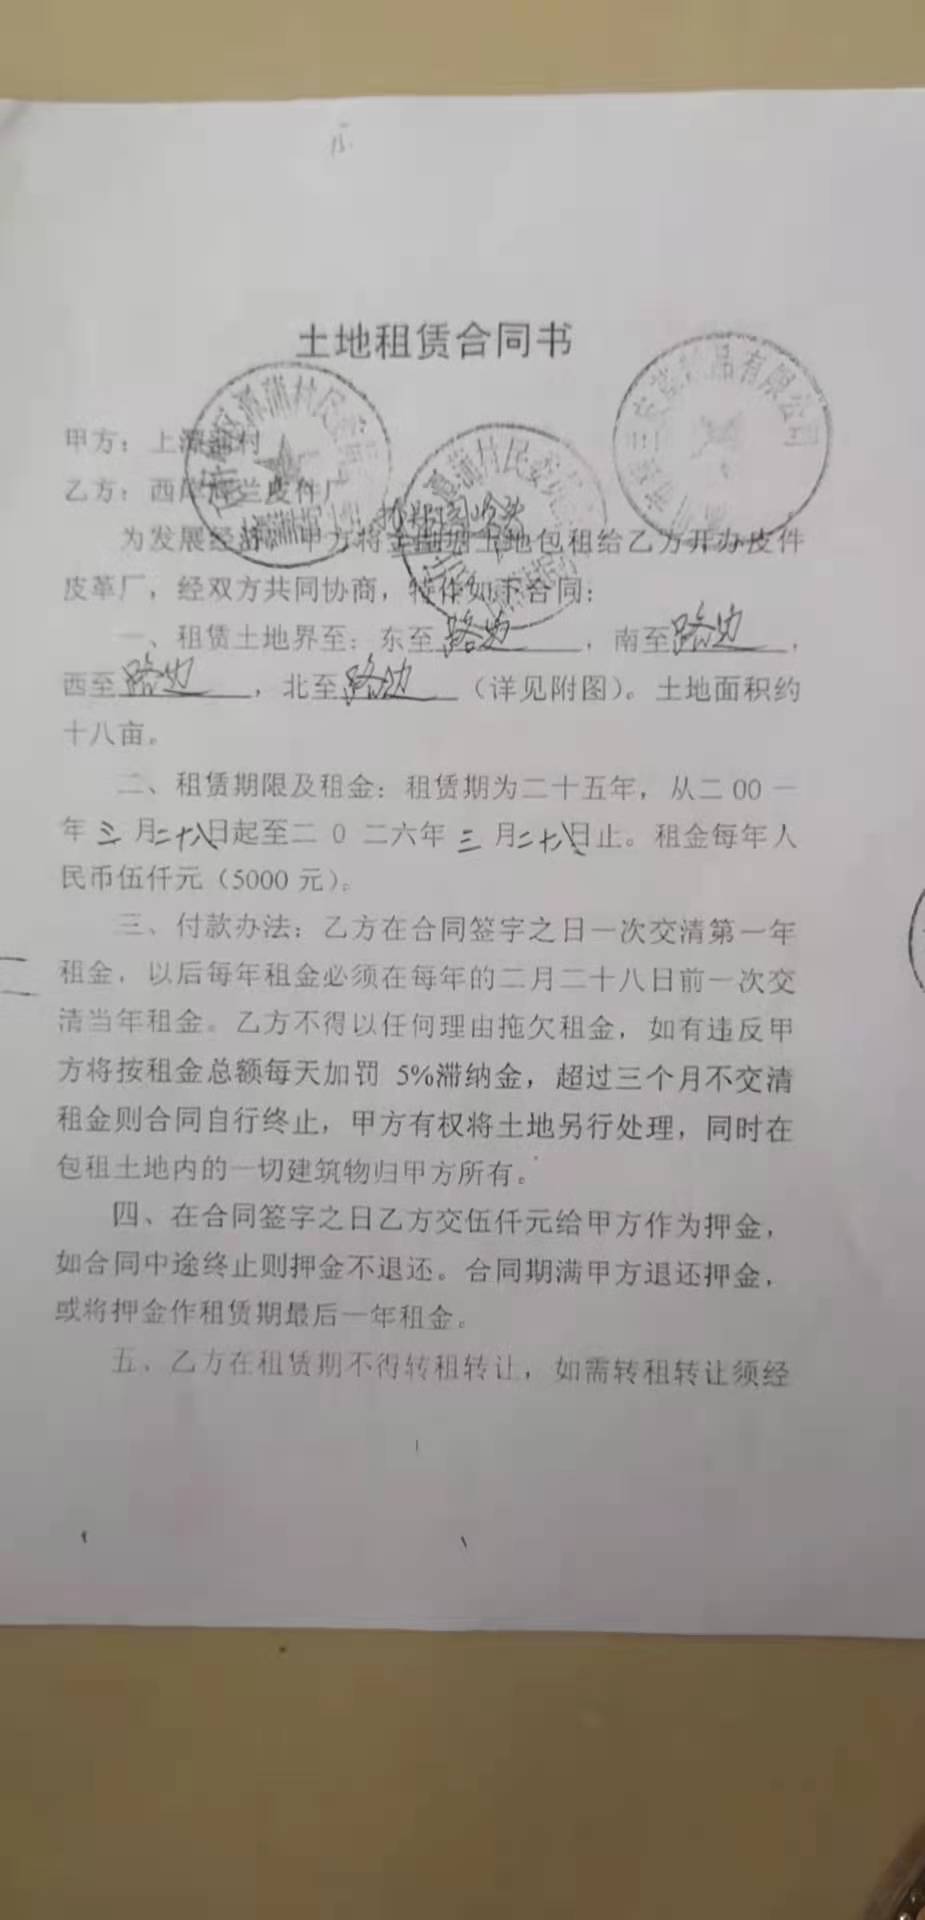 土地租赁合同书
甲方：上潭蒲村
乙方：西库 兰皮件厂
为发展经济，甲方将 土地包租给乙方开办皮件
皮革厂，经双方共同协商，特作如下合同：
一、租赁土地界至：东至路边，南至路边，
西至路边，北至路边（详见附图）。土地面积约
十八亩。
二、租赁期限及租金：租赁期为二十五年，从二00一
年三月二十八日起至二0二六年三月二十八日止。租金每年人
民币伍仟元（5000元）。
三、付款办法：乙方在合同签字之日一次交清第一年
租金，以后每年租金必须在每年的二月二十八日前一次交
清当年租金。乙方不得以任何理由拖欠租金，如有违反甲
方将按租金总额每天加罚 5%滞纳金，超过三个月不交清
租金则合同自行终止，甲方有权将土地另行处理，同时在
包租土地内的一切建筑物归甲方所有。
四、在合同签字之日乙方交伍仟元给甲方作为押金，
如合同中途终止则押金不退还。合同期满甲方退还押金，
或将押金作租赁期最后一年租金。
五、乙方在租赁期不得转租转让，如需转租转让须经